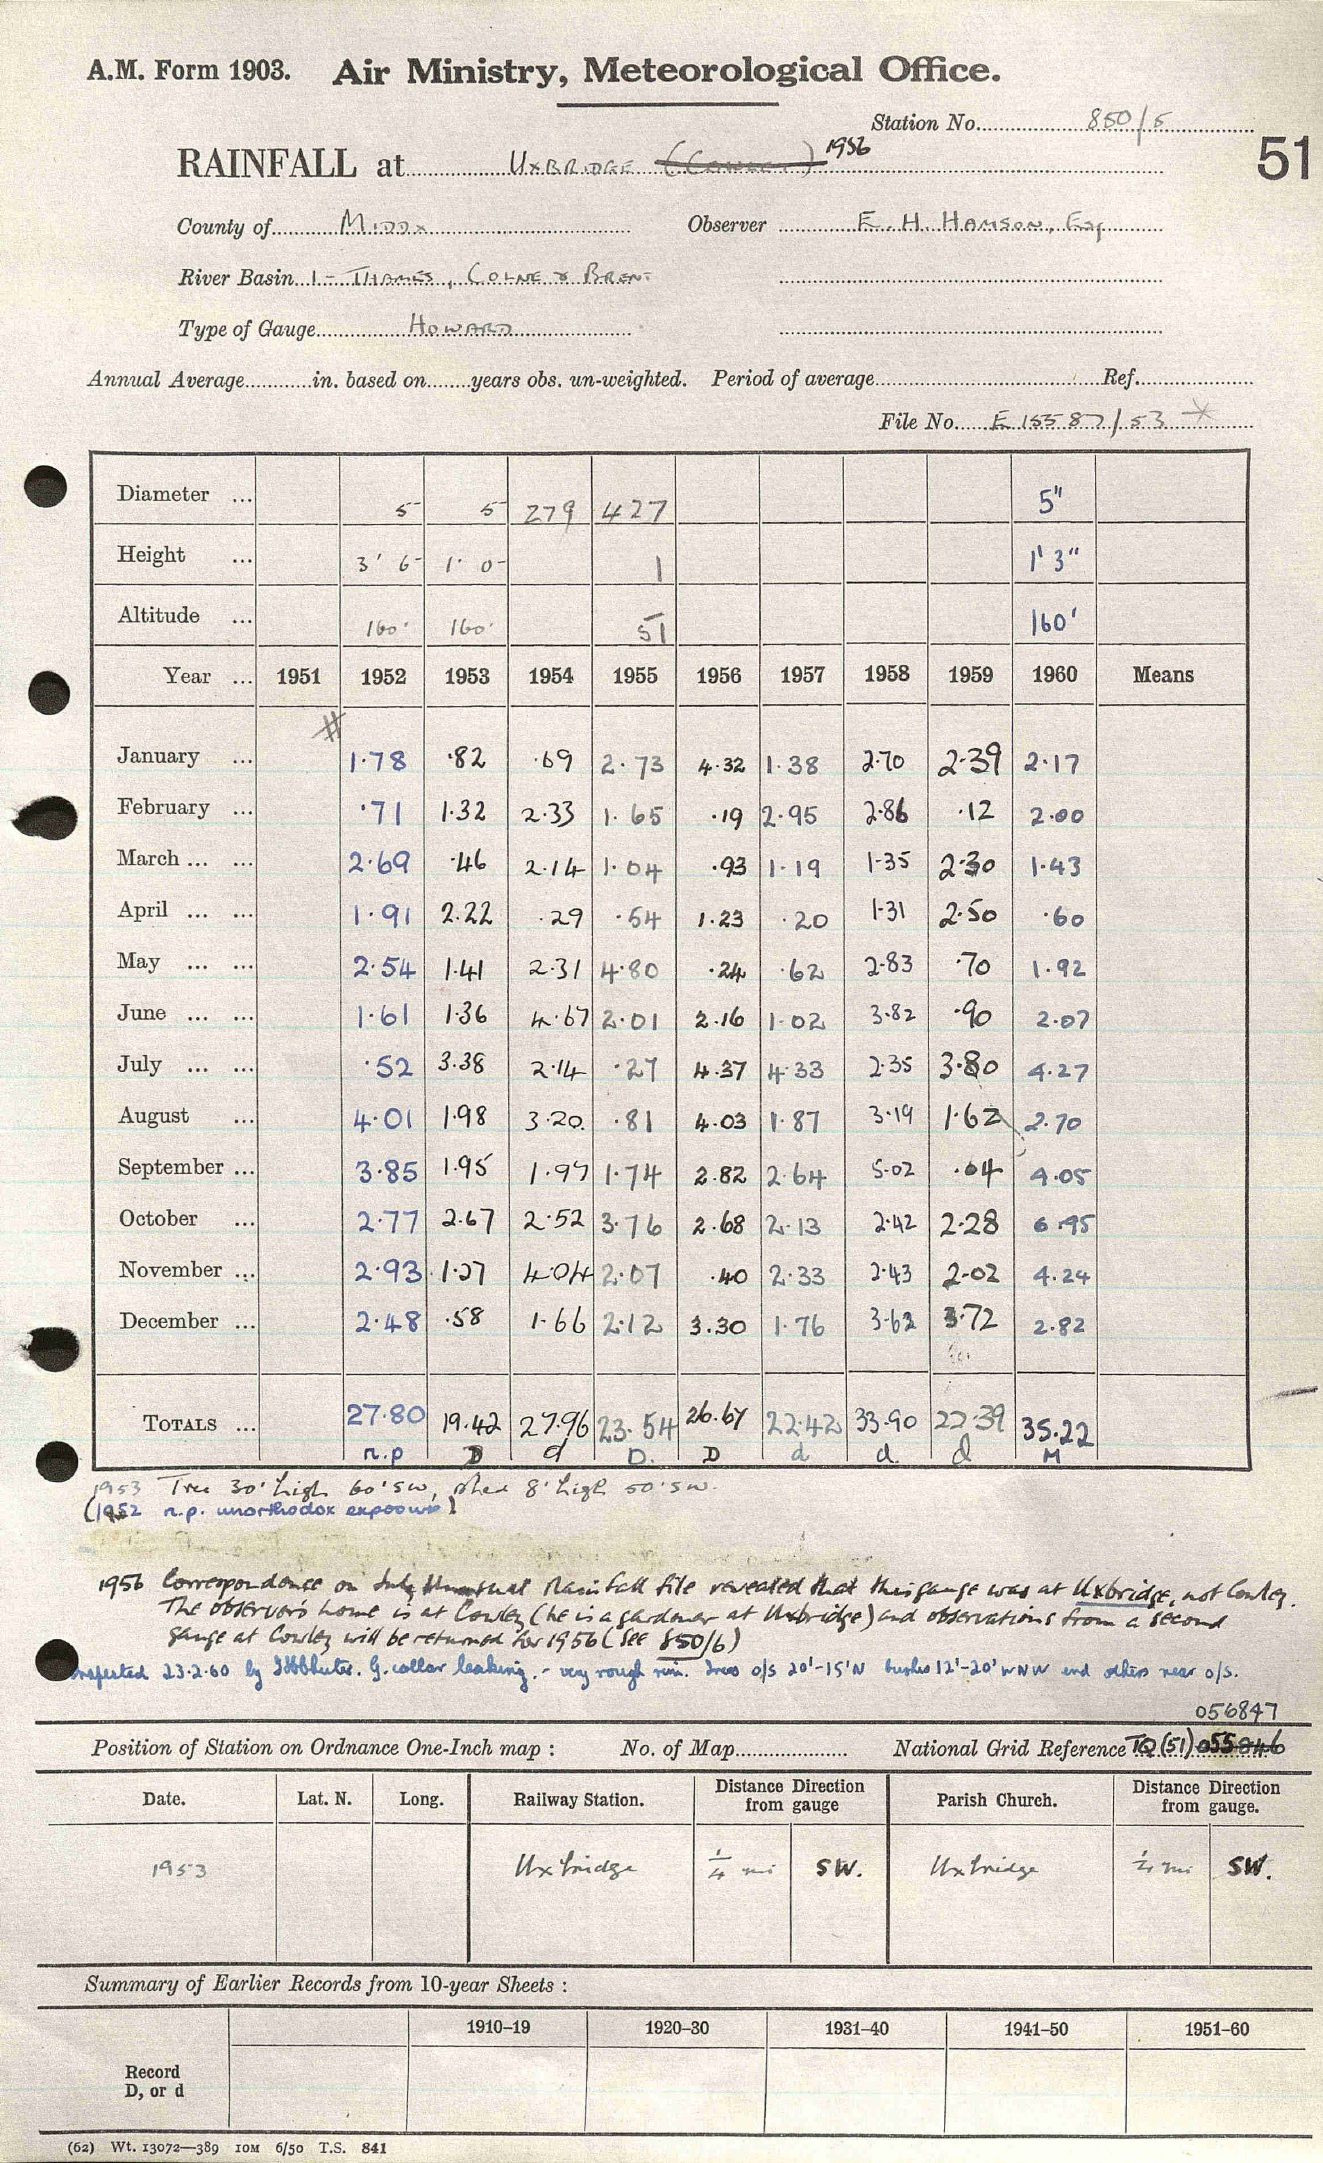 A.M. Form 1903. Air Ministry, Meteorological Office.
Station No. 850/5
RAINFALL at UXBRIDGE (COWLEY) 1956
51
County of MIDDX Observer E. H. HAMSON, Esq
River Basin 1 - THAMES, COLNE & BRENT
Type of Gauge HOWARD
Annual Average in. based on years obs. un-weighted. Period of average Ref.
File No. E 15587/53 *
Diameter ... 5 5 279 427 5"
Height ... 3' 6" 1' 0" 1 1' 3"
Altitude ... 160' 160' 51 160'
Year ... 1951 1952 1953 1954 1955 1956 1957 1958 1959 1960 Means
January ... 1.78 .82 .69 2.73 4.32 1.38 2.70 2.39 2.17
February ... .71 1.32 2.33 1.65 .19 2.95 2.86 .12 2.00
March ... ... 2.69 .46 2.14 1.04 .93 1.19 1.35 2.30 1.43
April ... ... 1.91 2.22 .29 .54 1.23 .20 1.31 2.50 .60
May ... ... 2.54 1.41 2.31 4.80 .24 .62 2.83 .70 1.92
June ... ... 1.61 1.36 4.67 2.01 2.16 1.02 3.82 .90 2.07
July ... ... .52 3.38 2.14 .27 4.37 4.33 2.35 3.80 4.27
August ... 4.01 1.98 3.20 .81 4.03 1.87 3.19 1.62 2.70
September ... 3.85 1.95 1.97 1.74 2.82 2.64 5.02 .04 4.05
October ... 2.77 2.67 2.52 3.76 2.68 2.13 2.42 2.28 6.95
November ... 2.93 1.27 4.04 2.07 .40 2.33 2.43 2.02 4.24
December ... 2.48 .58 1.66 2.12 3.30 1.76 3.62 3.72 2.82
TOTALS ... 27.80 19.42 27.96 23.54 26.67 22.42 33.90 22.39 35.22
n.p D d D. D d d. d M
1953 Tree 30' high 60' SW, shed 8' high 50' SW.
(1952 n.p. unorthodox exposure)
1956 Correspondence on July Unusual Rainfall file revealed that this gauge was at Uxbridge, not Cowley.
The observer's home is at Cowley (he is a gardener at Uxbridge) and observations from a second
gauge at Cowley will be returned for 1956 (See 850/6)
Inspected 23.2.60 by G. collar leaking. - very rough rim. Trees o/s 20'-15'N bushes 12'-20' WNW and others near o/s.
056847
Position of Station on Ordnance One-Inch map : No. of Map National Grid Reference TQ (51) 055846
Date. Lat. N. Long. Railway Station. Distance Direction from gauge Parish Church. Distance Direction from gauge.
1953 Uxbridge 1/4 mi SW. Uxbridge 1/4 mi SW.
Summary of Earlier Records from 10-year Sheets :
1910–19 1920–30 1931–40 1941–50 1951–60
Record
D, or d
(62) Wt. 13072—389 10M 6/50 T.S. 841